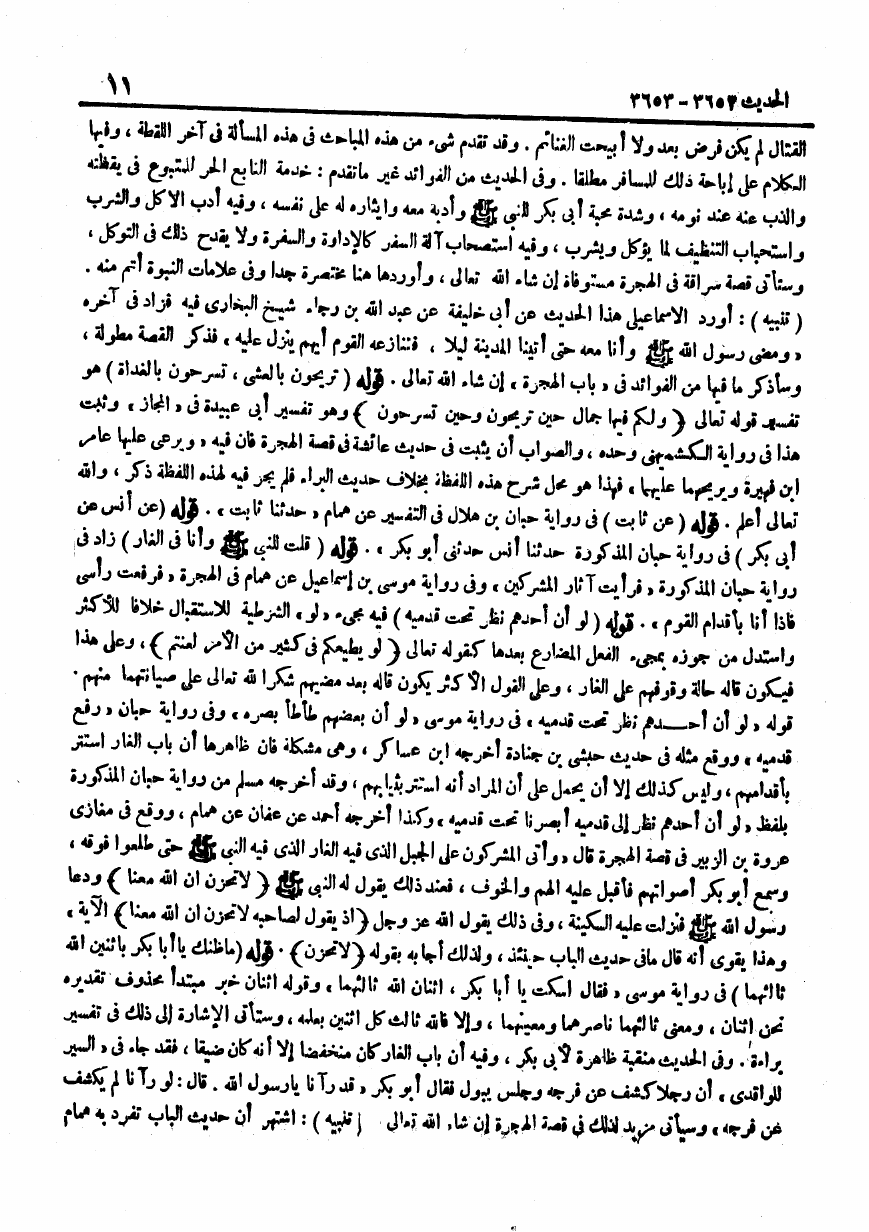 الحديث ٣٦٥٢ - ٣٦٥٣
١١
القتال لم يكن فرض بعد ولا أبيحت الغنائم . وقد تقدم شىء من هذه المباحث فى هذه المسألة فى آخر اللقطة ، وفيها
الكلام على إباحة ذلك للمسافر مطلقا . وفى الحديث من الفوائد غير ماتقدم : خدمة التابع الحر للمتبوع فى يقظته
والذب عنه عند نومه ، وشدة محبة أبى بكر للنبى ﷺ وأدبه معه وإيثاره له على نفسه ، وفيه أدب الأكل والشرب
واستحباب التنظيف لما يؤكل ويشرب ، وفيه استصحاب آلة السفر كالإداوة والسفرة ولا يقدح ذلك فى التوكل ،
وستأتى قصة سراقة فى الهجرة مستوفاة إن شاء الله تعالى ، وأوردها هنا مختصرة جدا وفى علامات النبوة أتم منه .
( تنبيه ) : أورد الاسماعيلى هذا الحديث عن أبى خليفة عن عبد الله بن رجاء شيخ البخارى فيه فزاد فى آخره
« ومضى رسول الله ﷺ وأنا معه حتى أتينا المدينة ليلا ، فتنازعه القوم أيهم ينزل عليه » فذكر القصة مطولة ،
وسأذكر ما فيها من الفوائد فى « باب الهجرة » إن شاء الله تعالى . قوله ( تريحون بالعشى ، تسرحون بالغداة ) هو
تفسير قوله تعالى ﴿ ولكم فيها جمال حين تريحون وحين تسرحون ﴾ وهو تفسير أبى عبيدة فى « المجاز » وثبت
هذا فى رواية الكشميهنى وحده ، والصواب أن يثبت فى حديث عائشة فى قصة الهجرة فان فيه « ويرعى عليها عامر
ابن فهيرة ويريحهما عليها » فهذا هو محل شرح هذه اللفظة بخلاف حديث البراء فلم يجر فيه لهذه اللفظة ذكر ، والله
تعالى أعلم . قوله ( عن ثابت ) فى رواية حبان بن هلال فى التفسير عن همام « حدثنا ثابت » . قوله ( عن أنس عن
أبى بكر ) فى رواية حبان المذكورة حدثنا أنس حدثنى أبو بكر » . قوله ( قلت للنبى ﷺ وأنا فى الغار ) زاد فى
رواية حبان المذكورة « فرأيت آثار المشركين » وفى رواية موسى بن إسماعيل عن همام فى الهجرة « فرفعت رأسى
فاذا أنا بأقدام القوم » . قوله ( لو أن أحدهم نظر تحت قدميه ) فيه مجىء « لو » الشرطية للاستقبال خلافا للأكثر
واستدل من جوزه بمجىء الفعل المضارع بعدها كقوله تعالى ﴿ لو يطيعكم فى كثير من الأمر لعنتم ﴾ ، وعلى هذا
فيكون قاله حالة وقوفهم على الغار ، وعلى القول الأكثر يكون قاله بعد مضيهم شكرا لله تعالى على صيانتهما منهم .
قوله « لو أن أحـــدهم نظر تحت قدميه » فى رواية موسى « لو أن بعضهم طأطأ بصره » وفى رواية حبان « رفع
قدميه » ووقع مثله فى حديث حبشى بن جنادة أخرجه ابن عساكر ، وهى مشكلة فان ظاهرها أن باب الغار استتر
بأقدامهم ، وليس كذلك إلا أن يحمل على أن المراد أنه استتر بثيابهم ، وقد أخرجه مسلم من رواية حبان المذكورة
بلفظ « لو أن أحدهم نظر إلى قدميه أبصرنا تحت قدميه » وكذا أخرجه أحمد عن عفان عن همام ، ووقع فى مغازى
عروة بن الزبير فى قصة الهجرة قال « وأتى المشركون على الجبل الذى فيه الغار الذى فيه النبى ﷺ حتى طلعوا فوقه ،
وسمع أبو بكر أصواتهم فأقبل عليه الهم والخوف ، فعند ذلك يقول له النبى ﷺ ﴿ لاتحزن ان الله معنا ﴾ ودعا
رسول الله ﷺ فنزلت عليه السكينة ، وفى ذلك يقول الله عز وجل ﴿ إذ يقول لصاحبه لاتحزن ان الله معنا ﴾ الآية »
وهذا يقوى أنه قال مافى حديث الباب حينئذ ، ولذلك أجابه بقوله ﴿ لاتحزن ﴾ . قوله ( ماظنك ياأبا بكر باثنين الله
ثالثهما ) فى رواية موسى « فقال اسكت يا أبا بكر ، اثنان الله ثالثهما » وقوله اثنان خبر مبتدأ محذوف تقديره
نحن اثنان ، ومعنى ثالثهما ناصرهما ومعينهما ، وإلا فالله ثالث كل اثنين بعلمه ، وستأتى الإشارة إلى ذلك فى تفسير
براءة . وفى الحديث منقبة ظاهرة لأبى بكر ، وفيه أن باب الغار كان منخفضا إلا أنه كان ضيقا ، فقد جاء فى « السير
للواقدى » أن رجلا كشف عن فرجه وجلس يبول فقال أبو بكر « قد رآنا يارسول الله . قال : لو رآنا لم يكشف
عن فرجه » وسيأتى مزيد لذلك فى قصة الهجرة إن شاء الله تعالى ( تنبيه ) : اشتهر أن حديث الباب تفرد به همام